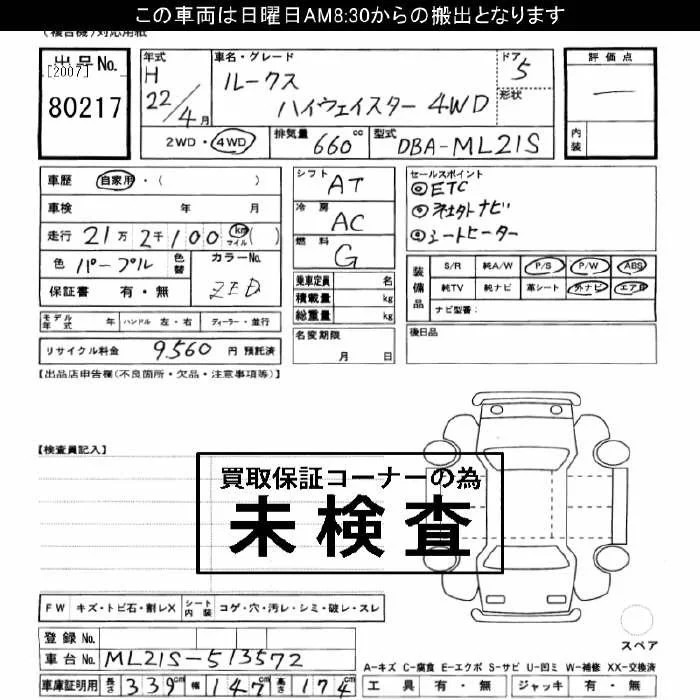 この車両は日曜日AM8:30からの搬出となります
(複合機)対応用紙
出品No.
[2007]
80217
年式
H
22/4月
車名・グレード
ルークス
ハイウェイスター 4WD
ドア
5
形状
2WD・4WD
排気量
660 cc
型式
DBA-ML21S
評価点
―
内装
車歴 自家用・( )
車検 年 月
走行 21万2千100 km マイル ( )
色 パープル 色替 カラーNo. ZED
保証書 有・無
モデル年式 年 ハンドル 左・右 ディーラー・並行
リサイクル料金 9,560 円 預託済
シフト AT
冷房 AC
燃料 G
乗車定員 名
積載量 kg
総重量 kg
名変期限
月 日
セールスポイント
①ETC
②社外ナビ
③シートヒーター
装備品
S/R 純A/W P/S P/W ABS
純TV 純ナビ 革シート 外ナビ エアB
ナビ型番:
後日品
【出品店申告欄(不良箇所・欠品・注意事項等)】
【検査員記入】
買取保証コーナーの為
未検査
FW キズ・トビ石・割レX シート内装 コゲ・穴・汚レ・シミ・破レ・スレ
登録No.
車台No. ML21S-513572
車庫証明用 長さ 339cm 幅 147cm 高さ 174cm
スペア
A-キズ C-腐食 E-エクボ S-サビ U-凹ミ W-補修 XX-交換済
工具 有・無 ジャッキ 有・無